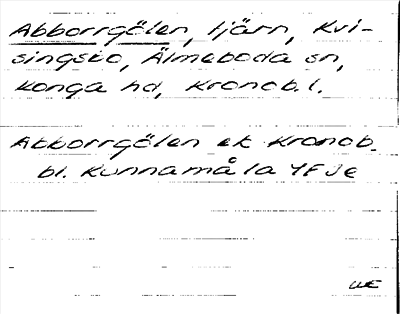 Abborrgölen, tjärn, Kvi-
singsbo, Älmeboda sn,
Konga hd, Kronob. l.
Abborrgölen ek Kronob.
bl. Kunnamåla 4F Je
WE